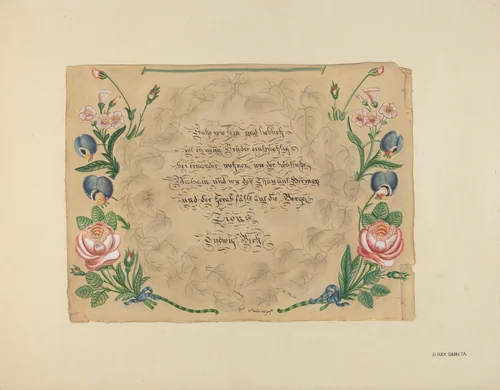 Siehe wie fein und lieblich
ist es wenn Brüder einträchtig
bei einander wohnen, wie der köstliche
Balsam und wie der Thau auf Hermon
und der herab fällt auf die Berge
Zions
Ludwig